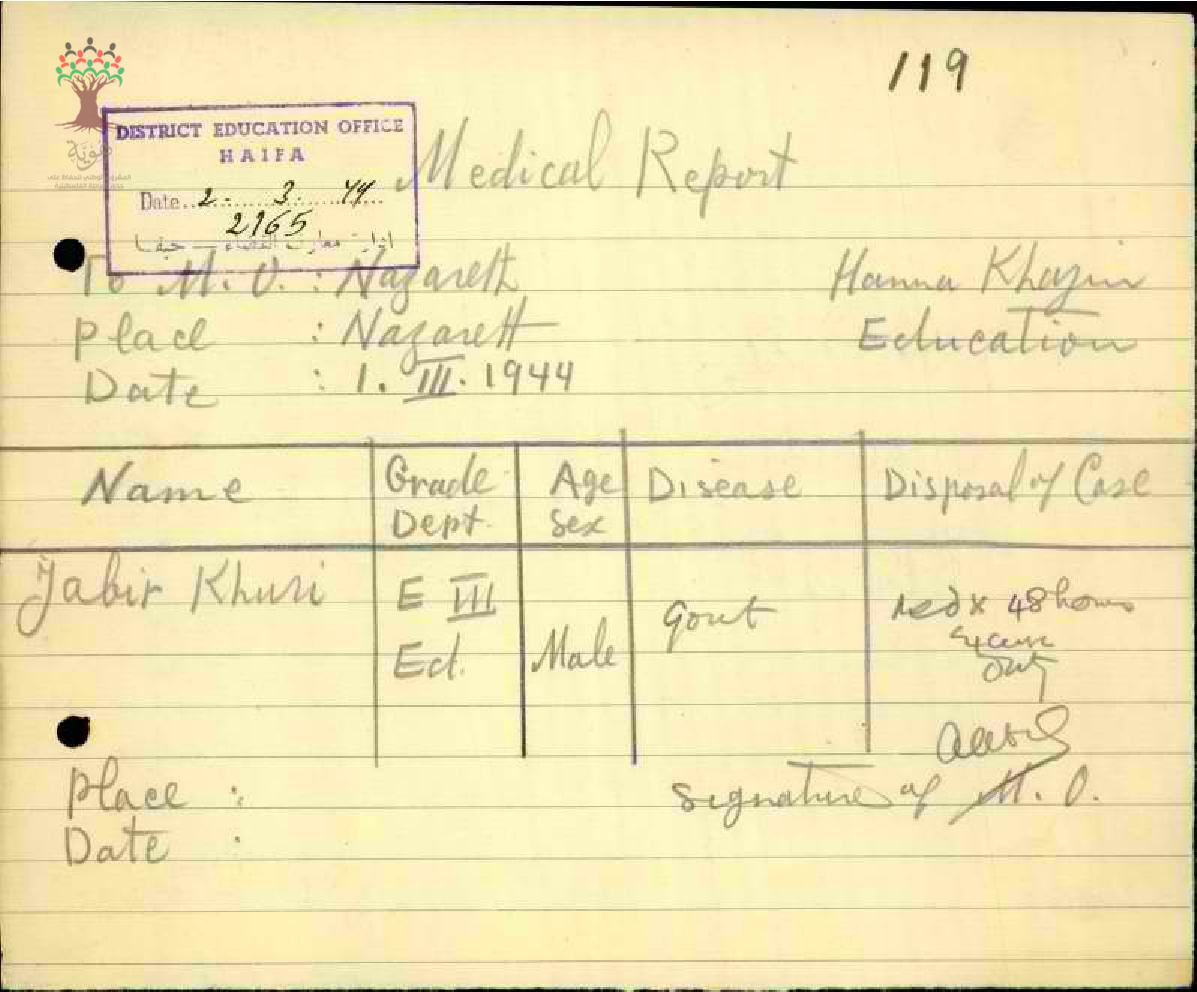 119
DISTRICT EDUCATION OFFICE
HAIFA
Date 2. 3. 44
2165
Medical Report
To M. O. : Nazareth
Hanna Khazin
Place : Nazareth
Education
Date : 1. III. 1944
Name Grade Dept. Age Sex Disease Disposal of Case
Jabir Khuri E III Ed. Male gout 48 hours
Place :
signature of M. O.
Date :